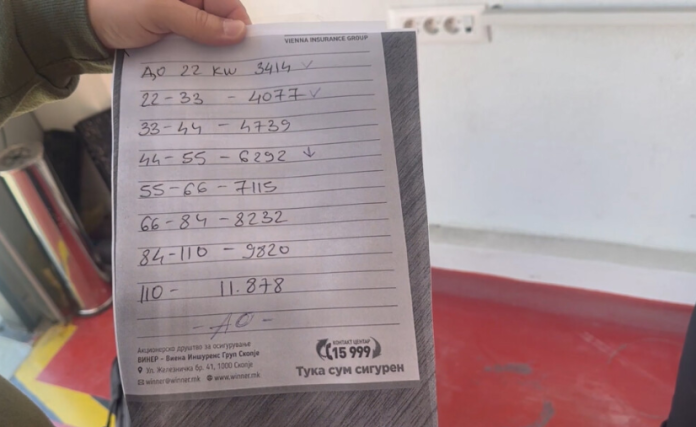 VIENNA INSURANCE GROUP
ДО 22 KW 3414 ✓
22-33 - 4077 ✓
33-44 - 4739
44-55 - 6292 ↓
55-66 - 7115
66-84 - 8232
84-110 - 9820
110 - 11.878
- АО -
Акционерско друштво за осигурување
ВИНЕР - Виена Иншуренс Груп Скопје
Ул. Железничка бр. 41, 1000 Скопје
winner@winner.mk www.winner.mk
КОНТАКТ ЦЕНТАР
15 999
Тука сум сигурен